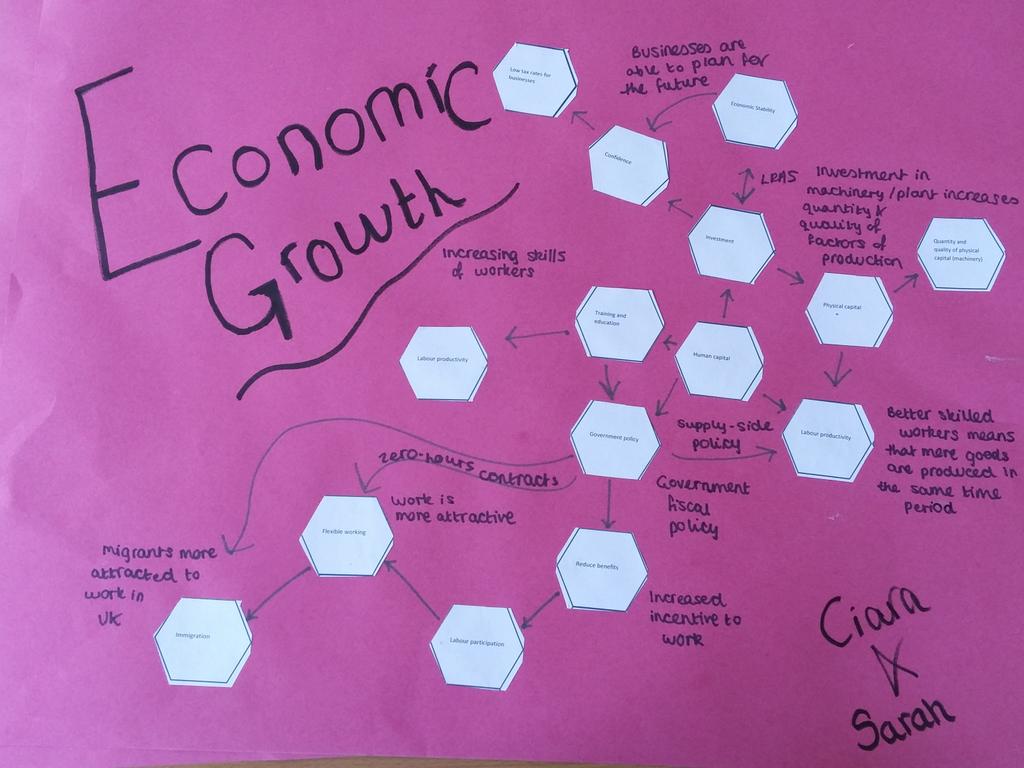 Economic
Growth
Low tax rates for
businesses
Businesses are
able to plan for
the future
Economic Stability
Confidence
LRAS
Investment in
machinery/plant increases
quantity &
quality of
factors of
production
Investment
Quantity and
quality of physical
capital (machinery)
Physical capital
Increasing skills
of workers
Training and
education
Human capital
Labour productivity
Government policy
Supply-side
policy
Labour productivity
Better skilled
workers means
that more goods
are produced in
the same time
period
zero-hours
contracts
Government
fiscal
policy
work is
more attractive
Flexible working
Migrants more
attracted to
work in
UK
Reduce benefits
Increased
incentive to
work
Immigration
Labour participation
Ciara
&
Sarah